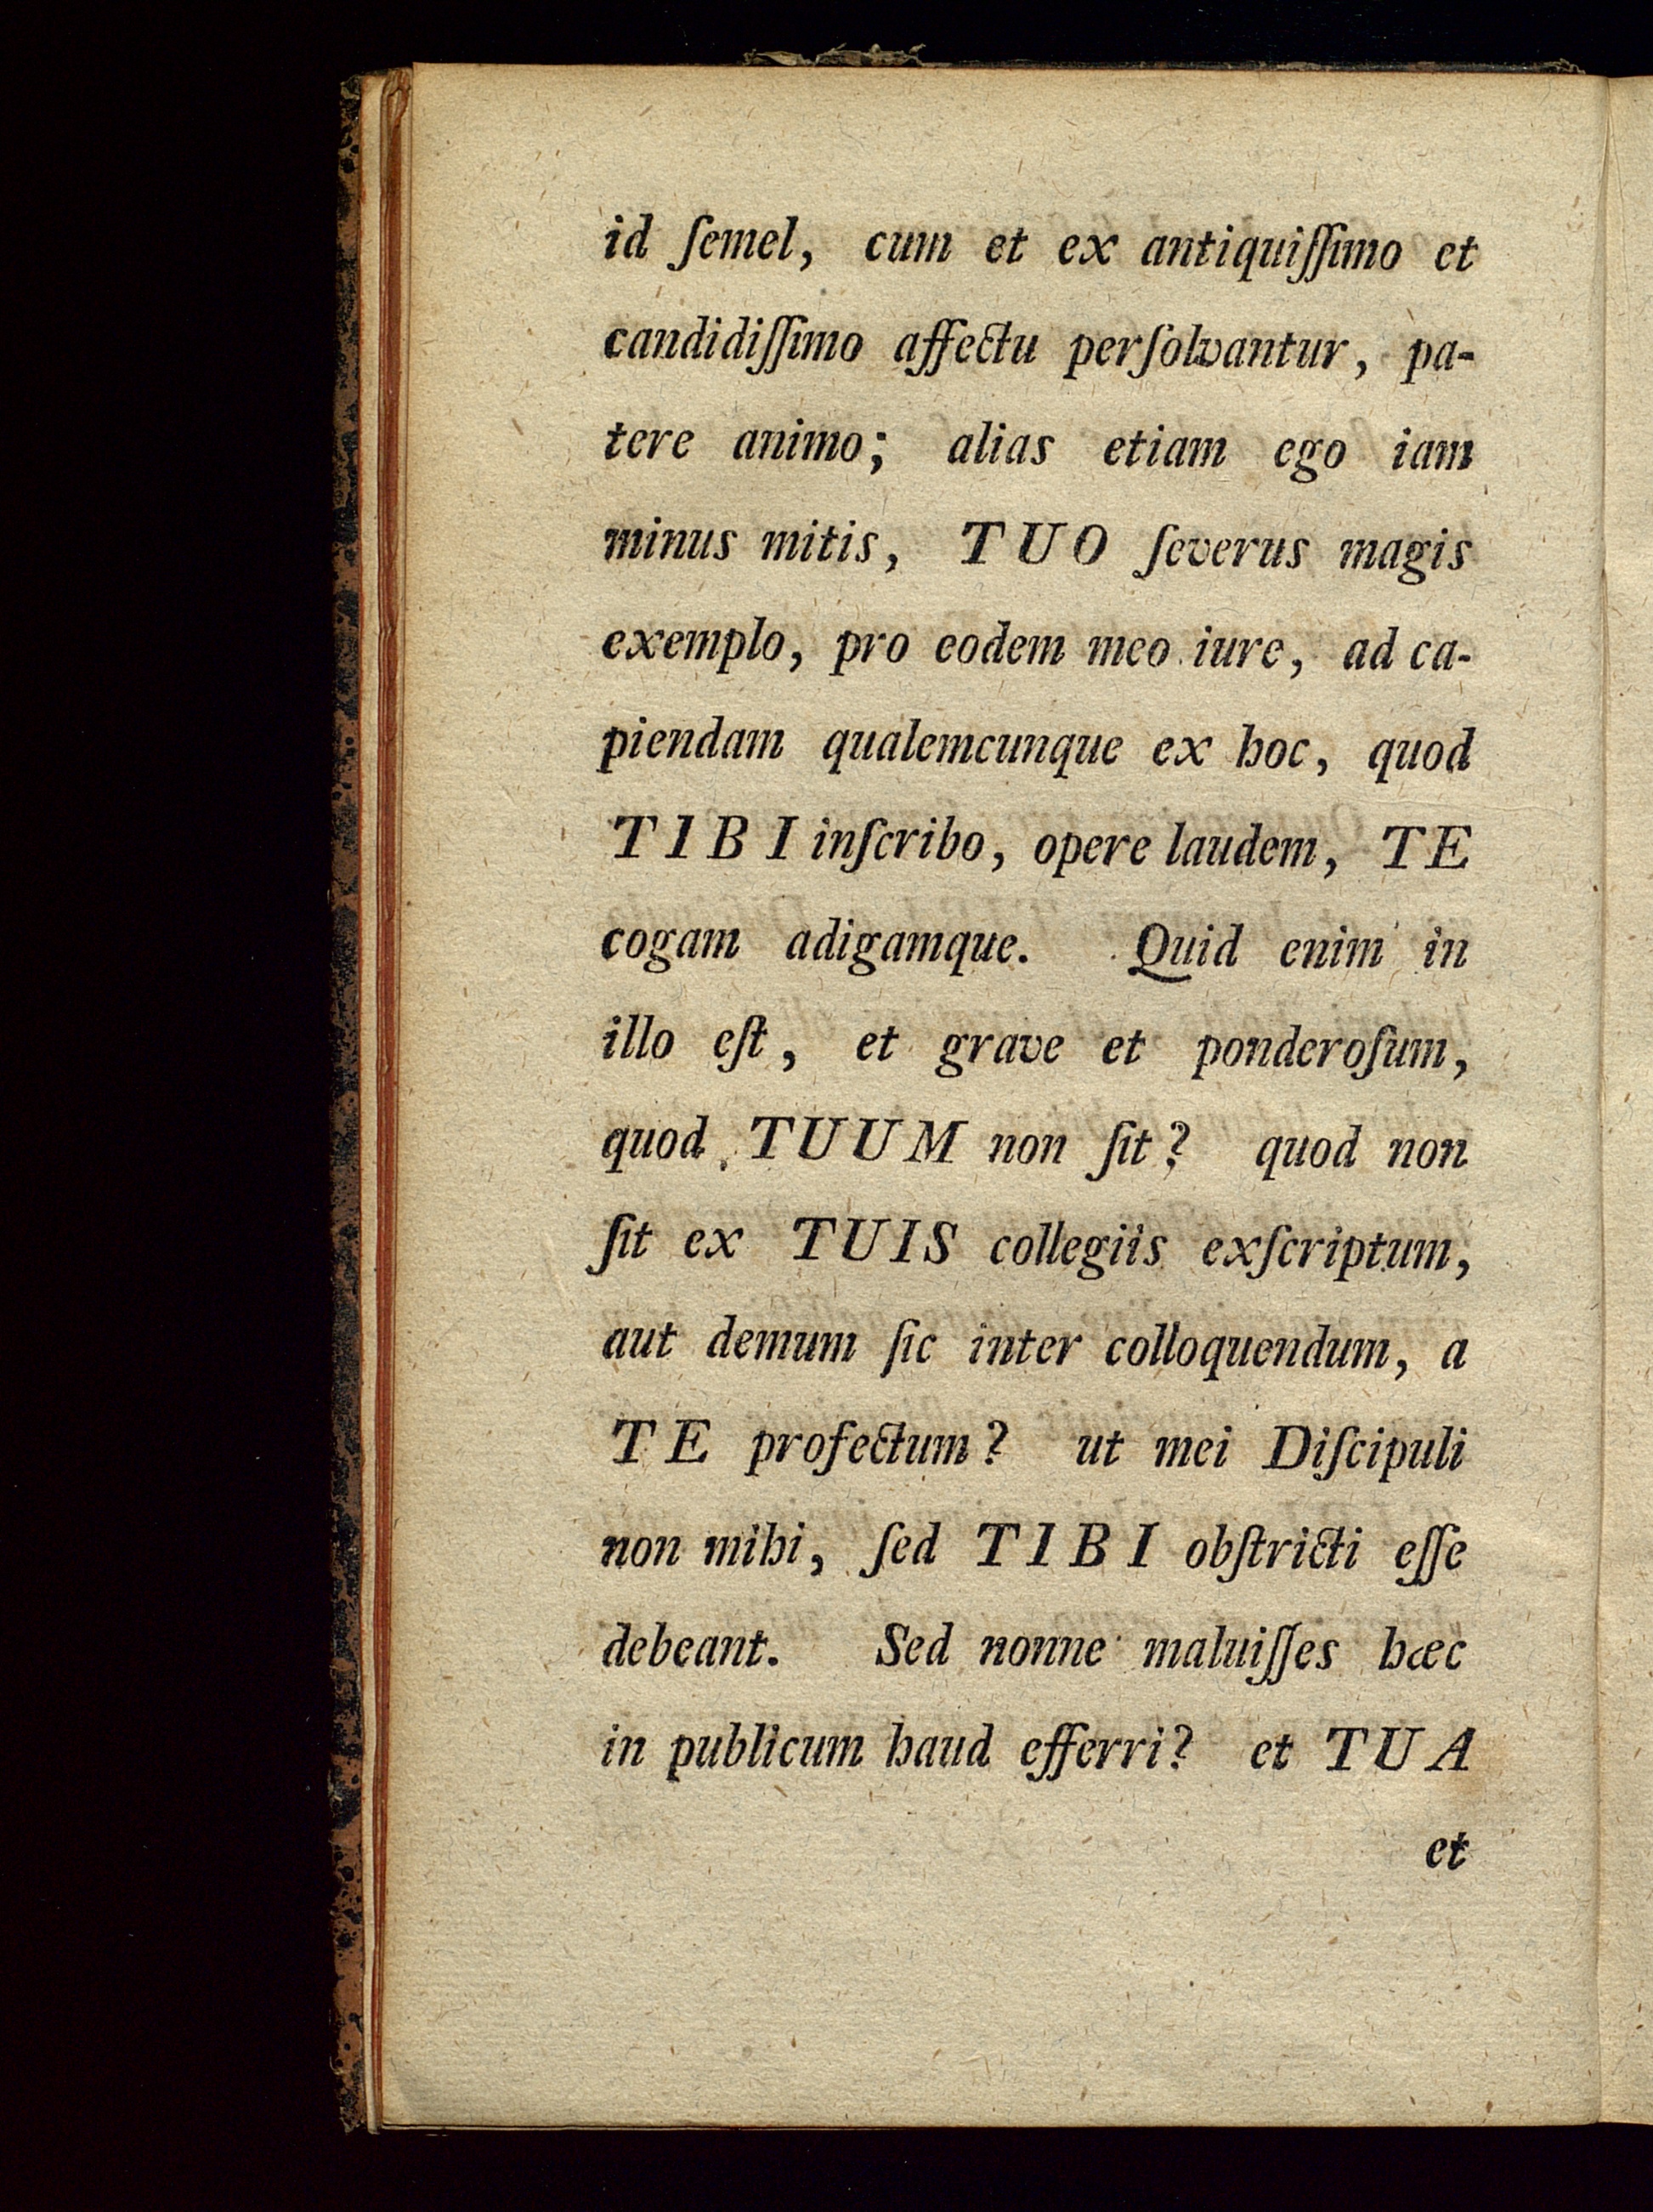 id ſemel, cum et ex antiquiſſimo et
candidiſſimo affectu perſolvantur, pa-
tere animo; alias etiam ego iam
minus mitis, TUO ſeverus magis
exemplo, pro eodem meo iure, ad ca-
piendam qualemcunque ex hoc, quod
TIBI inſcribo, opere laudem, TE
cogam adigamque. Quid enim in
illo eſt, et grave et ponderoſum,
quod TUUM non ſit? quod non
ſit ex TUIS collegiis exſcriptum,
aut demum ſic inter colloquendum, a
TE profectum? ut mei Diſcipuli
non mihi, ſed TIBI obſtricti eſſe
debeant. Sed nonne maluiſſes hæc
in publicum haud efferri? et TUA
et